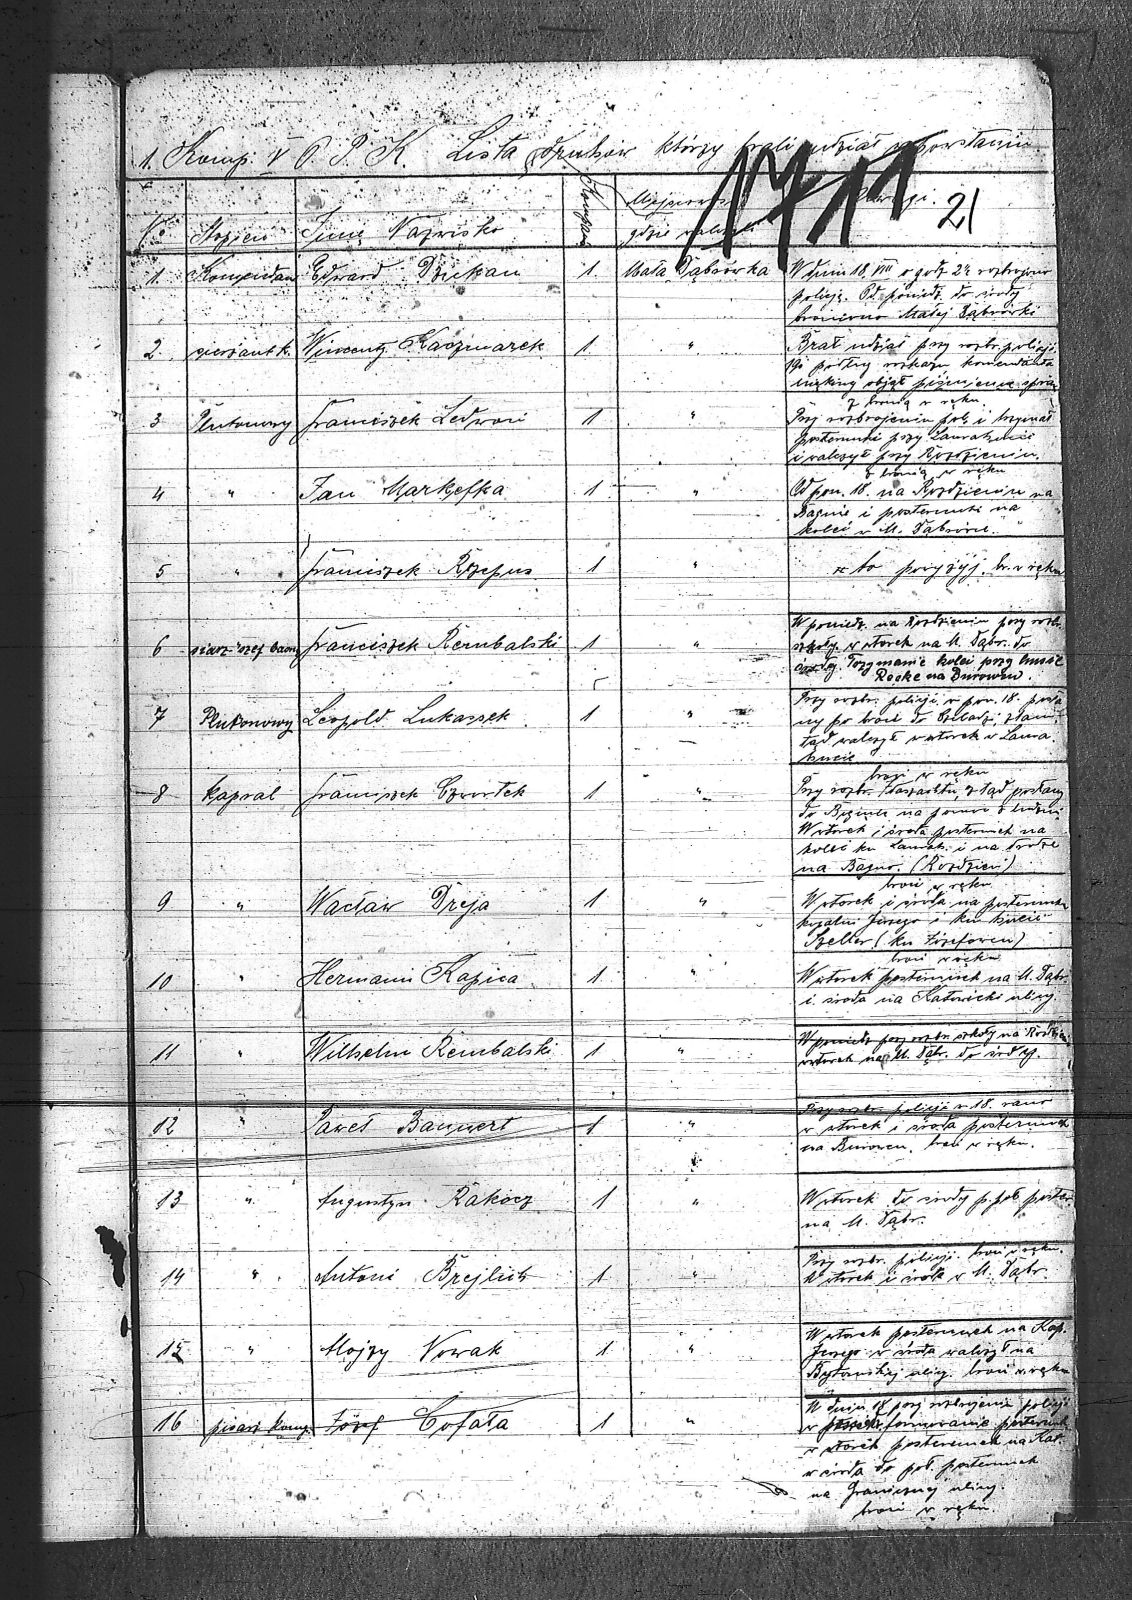 1. Komp. V P. P. K. Lista Druhów którzy brali udział w powstaniu
1711
21
No Stopień Imię Nazwisko Kompanja Miejscowość Uwagi.
gdzie walczył
1. Komendant Edward Dziekan 1 Mała Dąbrówka W dniu 18. VIII o godz 2½ rozbrojono
policję. Od poniedz. do środy
broniono Małej Dąbrówki
2. sierżant k. Wincenty Kaczmarek 1 " Brał udział przy rozbr. policji.
podług rozkazu komendanta
objął
z bronią w ręku.
3 Plutonowy Franciszek Ledwoń 1 " Przy rozbrojeniu pol. i trzymał
posterunki przy Laurahucie
i walczył przy Roździeniu.
z bronią w ręku
4 " Jan Markefka 1 " Od pon. 18. na Roździeniu na
Bagnie i posterunki na
kolei w M. Dąbrówce.
5 " Franciszek Rzepus 1 " to powyżej. br. w ręku
6 Franciszek Rembalski 1 " W poniedz. na Roździeniu przy rozbr.
szkoły, w wtorek na M. Dąbr. do
środy. Trzymanie kolei przy hucie
na Burowcu.
7 Plutonowy Leopold Lukaszek 1 " Przy rozbr. policji w pon. 18. posła
ny po broń do Czeladzi, stam
tąd walczył w wtorek w Laura
hucie
broń w ręku
8 kapral Franciszek Czwortek 1 " Przy rozbr. z tąd posłany
do na pomoc z ludźmi
W wtorek i środa posterunek na
kolei ku Laurah. i na drodze
na Bagno. (Roździeń)
broń w ręku
9 " Wacław Dreja 1 " W wtorek i środa na posterunku
kopalni Jerzego i ku hucie
(ku Józefowcu)
broń w ręku
10 " Hermann Kapica 1 " W wtorek posterunek na M. Dąbr.
i środa na Katowicki ulicy.
11 " Wilhelm Rembalski 1 " W poniedz. przy rozbr. szkoły na Roździe
wtorek na M. Dąbr. do środy.
12 " Paweł Bannert 1 " Przy rozbr. policji w 18. rano
w wtorek i środa posterunek
na Burowcu, broń w ręku.
13 " Augustyn Rakocz 1 " W wtorek do środy p. poł. poster.
na M. Dąbr.
14 " Antoni Brejlich 1 " Przy rozbr. policji. broń w ręku.
W wtorek i środa w M. Dąbr.
15 " Alojzy Nowak 1 " W wtorek posterunek na Kop.
Jerzego w środa walczył na
Bytomskiej ulicy. broń w ręku
16 pisarz komp. Józef Cofała 1 " W dniu 18 przy rozbrojeniu policji
w formowanie posterunk
w wtorek posterunek na Kat.
w środa do poł. posterunek
na Granicznej ulicy.
broń w ręku.